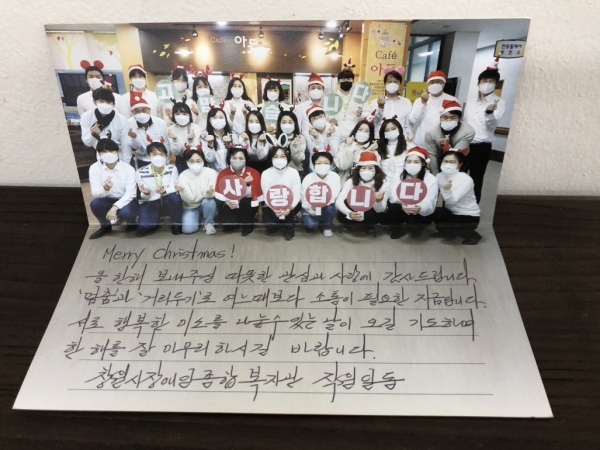 Café 아
Café
고맙습니다
사랑합니다
Merry Christmas!
올 한해 보내주신 따뜻한 관심과 사랑에 감사드립니다.
'멈춤'과 '거리두기'로 어느때보다 소통이 필요한 지금입니다.
서로 행복한 미소를 나눌수 있는 날이 오길 기도하며
한 해를 잘 마무리 하시길 바랍니다.
창원시장애인종합복지관 직원일동